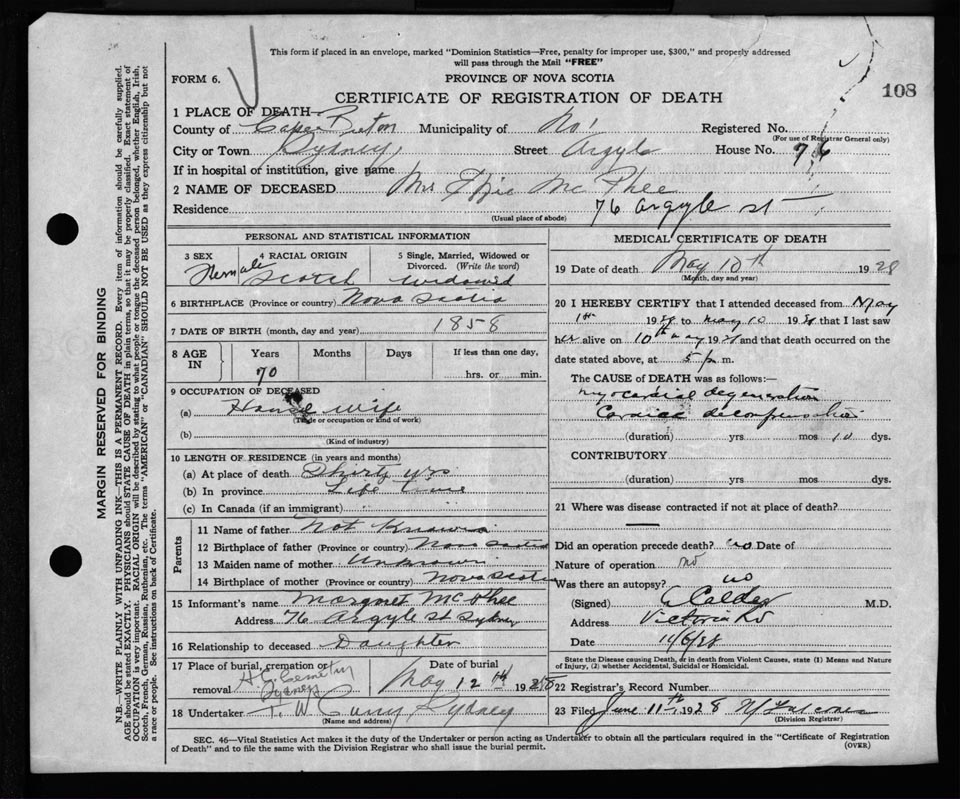 This form if placed in an envelope, marked "Dominion Statistics—Free, penalty for improper use, $300," and properly addressed
will pass through the Mail "FREE"
FORM 6.
PROVINCE OF NOVA SCOTIA
CERTIFICATE OF REGISTRATION OF DEATH
108
1 PLACE OF DEATH—
County of Cape Breton Municipality of No 1 Registered No.
(For use of Registrar General only)
City or Town Sydney, Street Argyle House No. 76
If in hospital or institution, give name
2 NAME OF DECEASED Mrs Effie McPhee
Residence 76 Argyle st
(Usual place of abode)
PERSONAL AND STATISTICAL INFORMATION
3 SEX Female 4 RACIAL ORIGIN Scotch 5 Single, Married, Widowed or Divorced. (Write the word) widowed
6 BIRTHPLACE (Province or country) Nova Scotia
7 DATE OF BIRTH (month, day and year) 1858
8 AGE IN Years 70 Months Days If less than one day, hrs. or min.
9 OCCUPATION OF DECEASED
(a) House wife
(Trade or occupation or kind of work)
(b)
(Kind of industry)
10 LENGTH OF RESIDENCE (in years and months)
(a) At place of death Thirty yrs
(b) In province Life time
(c) In Canada (if an immigrant)
Parents
11 Name of father Not Known
12 Birthplace of father (Province or country) Nova Scotia
13 Maiden name of mother Unknown
14 Birthplace of mother (Province or country) Nova Scotia
15 Informant's name Margret McPhee
Address 76 Argyle St Sydney
16 Relationship to deceased Daughter
17 Place of burial, cremation or removal Cemetry Sydney Date of burial May 12th 1928
18 Undertaker T. W Curry Sydney
(Name and address)
MEDICAL CERTIFICATE OF DEATH
19 Date of death May 10th 1928
(Month, day and year)
20 I HEREBY CERTIFY that I attended deceased from May
1st 1928 to May 10 1928 that I last saw
her alive on 10th May 1928 and that death occurred on the
date stated above, at 5 p m.
The CAUSE of DEATH was as follows:—
myocardial degeneration
Cardiac decompensation
(duration) yrs mos 10 dys.
CONTRIBUTORY
(duration) yrs mos dys.
21 Where was disease contracted if not at place of death?
Did an operation precede death? no Date of
Nature of operation no
Was there an autopsy? no
(Signed) Calder M.D.
Address Victoria Rd
Date 11/6/28
State the Disease causing Death, or in death from Violent Causes, state (1) Means and Nature
of Injury, (2) whether Accidental, Suicidal or Homicidal.
22 Registrar's Record Number
23 Filed June 11th 1928
(Division Registrar)
SEC. 46—Vital Statistics Act makes it the duty of the Undertaker or person acting as Undertaker to obtain all the particulars required in the "Certificate of Registration
of Death" and to file the same with the Division Registrar who shall issue the burial permit.
(OVER)
MARGIN RESERVED FOR BINDING
N.B.—WRITE PLAINLY WITH UNFADING INK—THIS IS A PERMANENT RECORD. Every item of information should be carefully supplied.
AGE should be stated EXACTLY. PHYSICIANS should STATE CAUSE OF DEATH in plain terms, so that it may be properly classified. Exact statement of
OCCUPATION is very important. RACIAL ORIGIN will be described by stating to what people or tongue the deceased person belonged, whether English, Irish,
Scotch, French, German, Russian, Ruthenian, etc. The terms "AMERICAN" or "CANADIAN" SHOULD NOT BE USED as they express citizenship but not
a race or people. See instructions on back of Certificate.